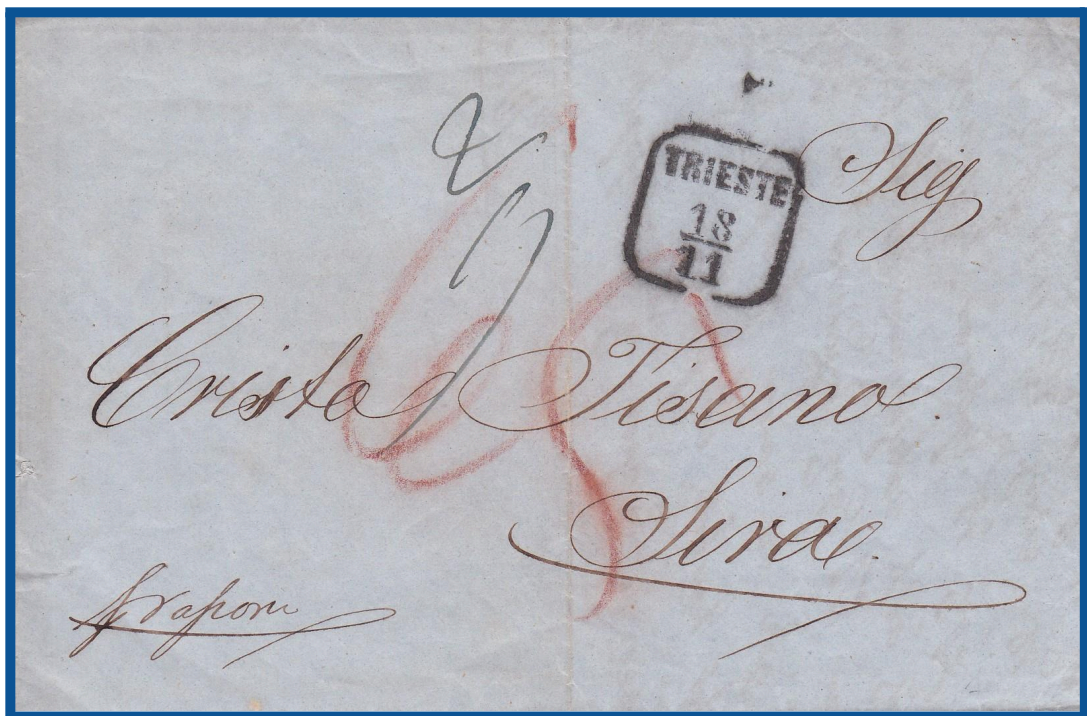 Sig
TRIESTE
18
11
Cristo Tisano
Sira.
vapore